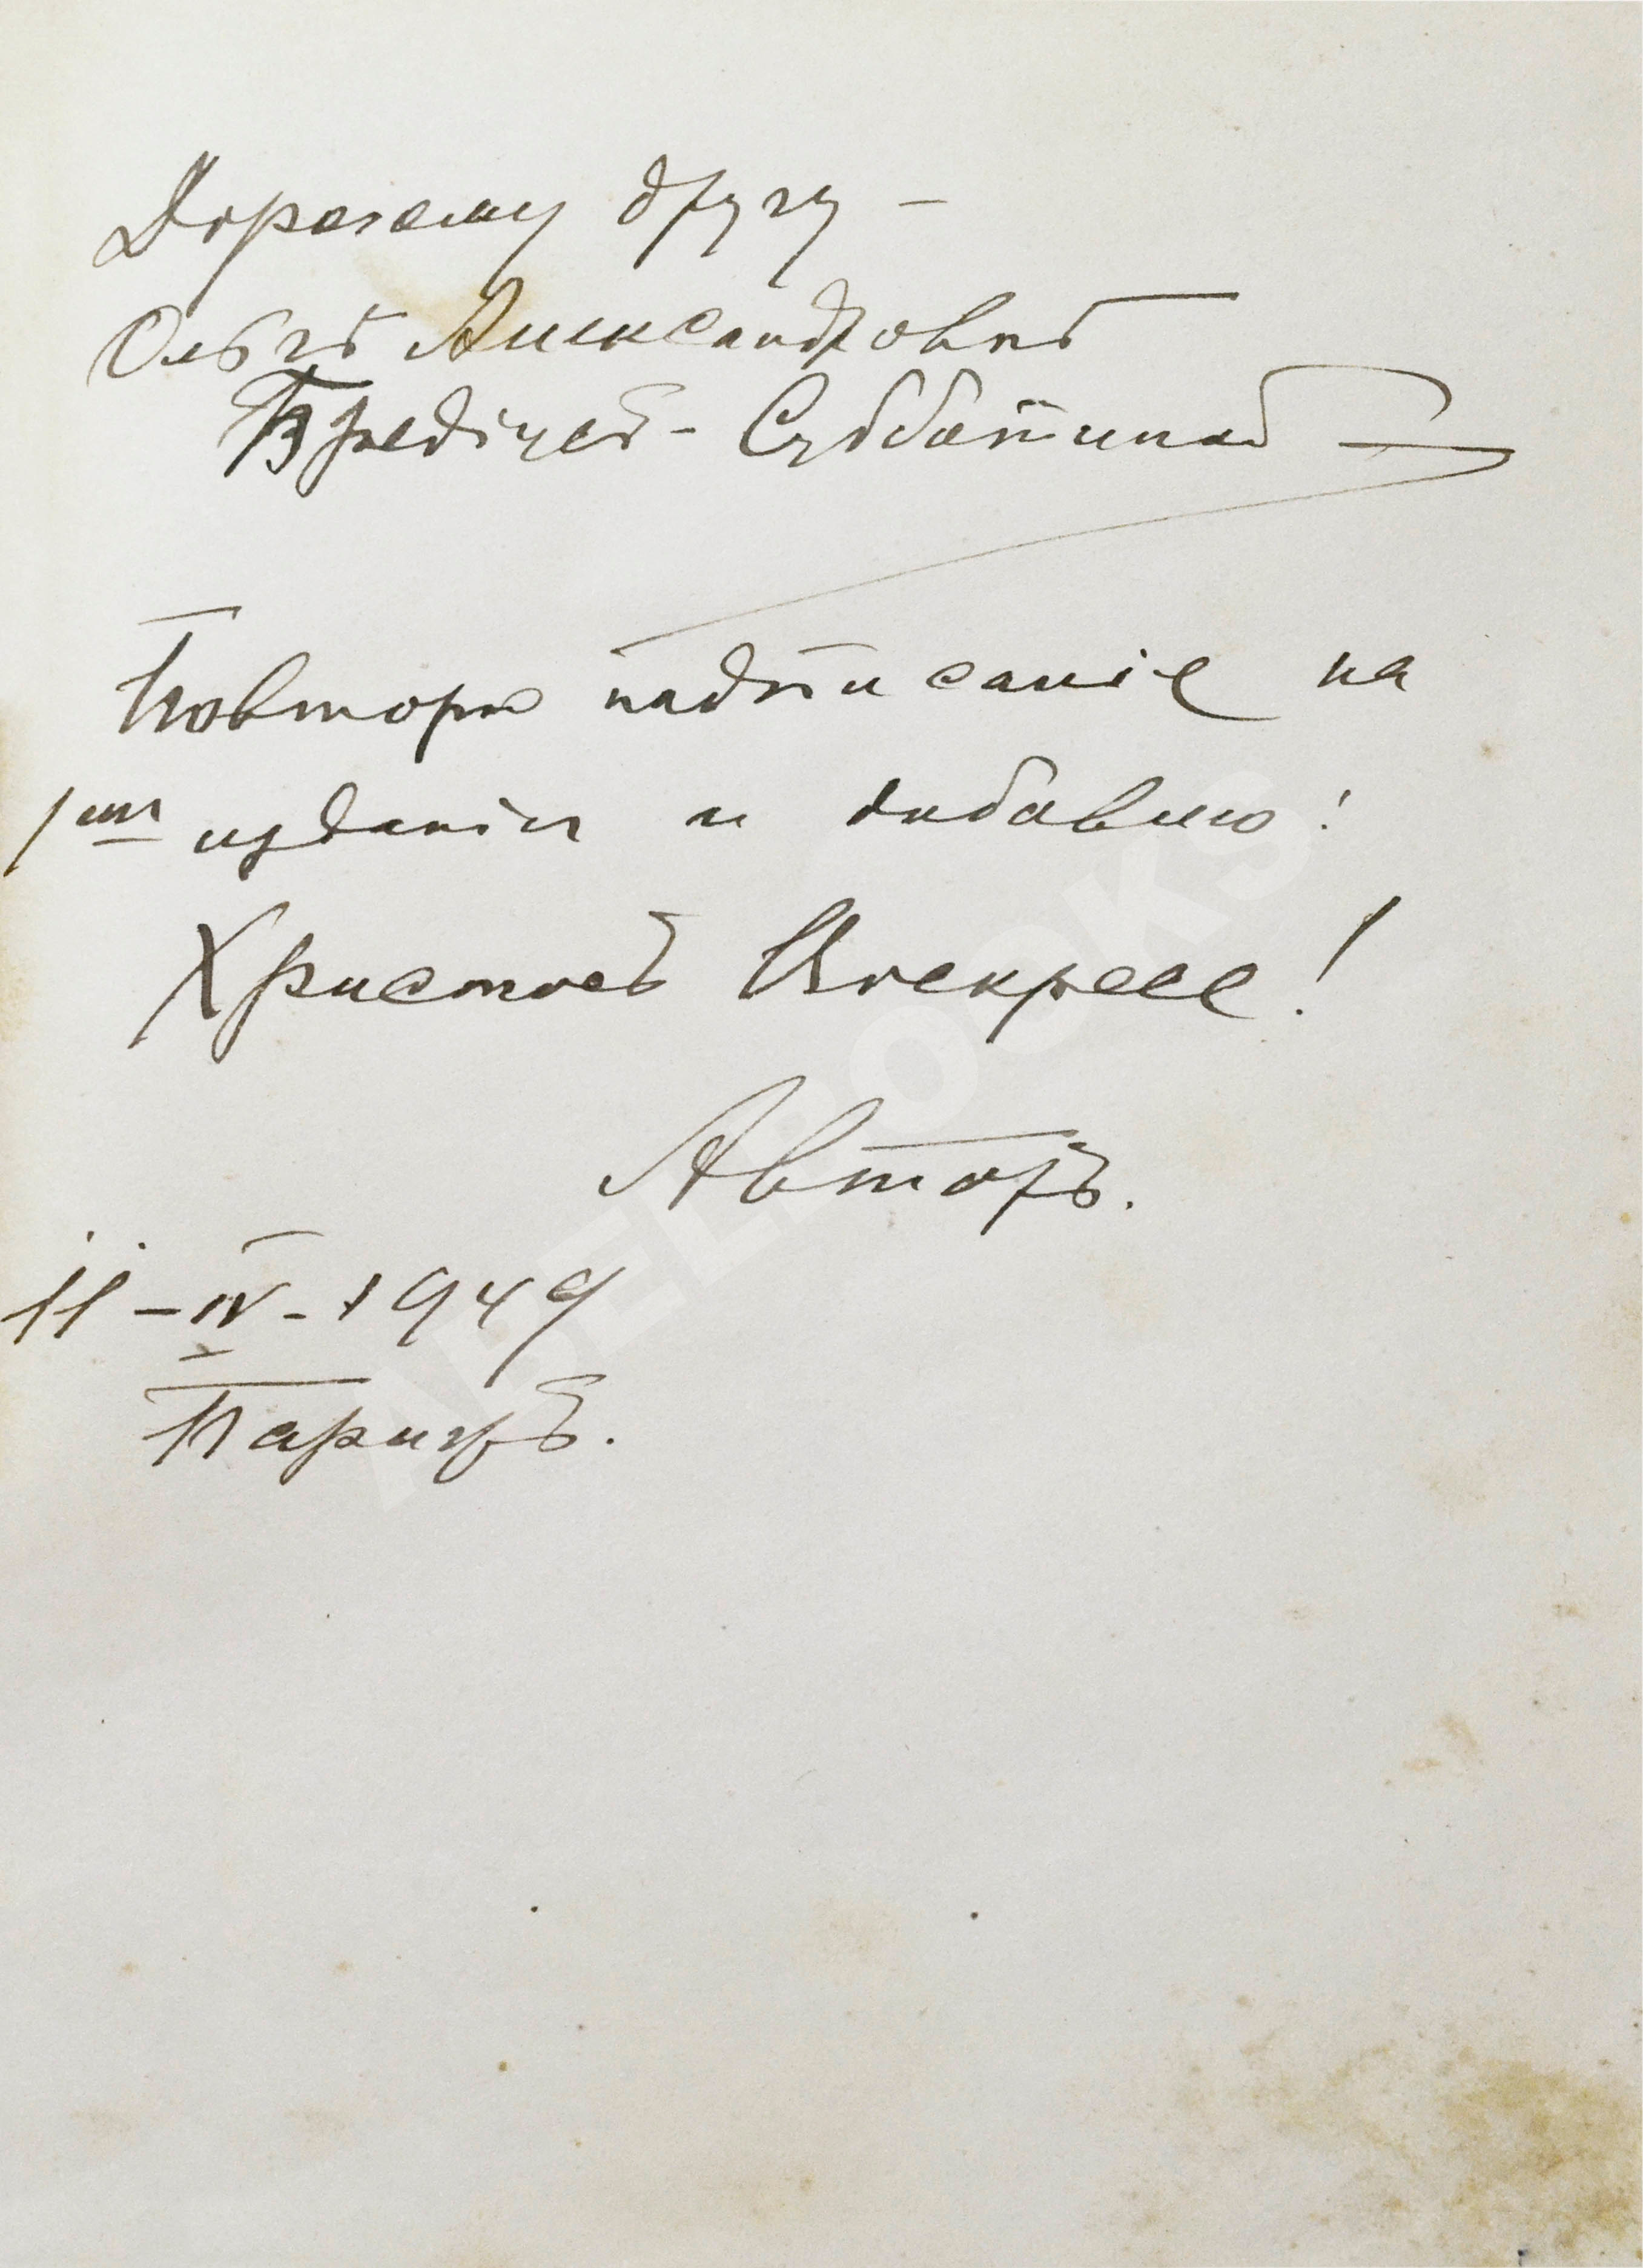 Дорогому другу –
Ольгѣ Александровнѣ
Бредіусъ-Субботиной –
Повторю надписаніе на
1-мъ изданіи и добавлю:
Христосъ Воскресе!
Авторъ.
11-IV-1949
Парижъ.
ABELBOOKS